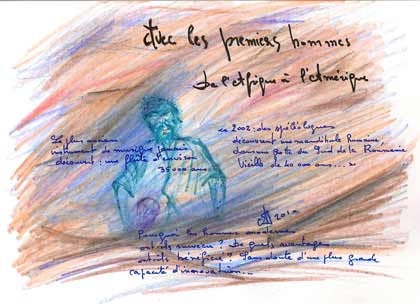 Avec les premiers hommes
De l'Afrique à l'Amérique
Le plus ancien
instrument de musique jamais
découvert : une flûte d'environ
35000 ans
<< 2002 : des spéléologues
découvrent une mandibule humaine
dans une grotte du Sud de la Roumanie
Vieille de 40 000 ans... >>
2010
Pourquoi les hommes modernes
ont-ils survécu ? De quels avantages
ont-ils bénéficié ? Sans doute d'une plus grande
capacité d'innovation...